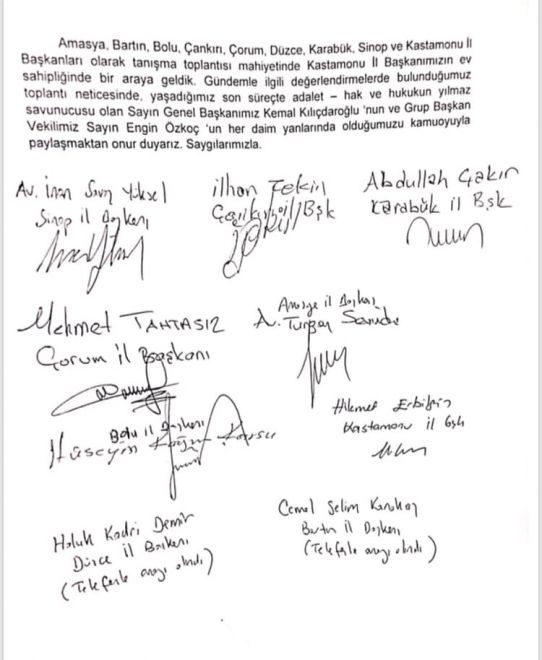 Amasya, Bartın, Bolu, Çankırı, Çorum, Düzce, Karabük, Sinop ve Kastamonu İl
Başkanları olarak tanışma toplantısı mahiyetinde Kastamonu İl Başkanımızın ev
sahipliğinde bir araya geldik. Gündemle ilgili değerlendirmelerde bulunduğumuz
toplantı neticesinde, yaşadığımız son süreçte adalet – hak ve hukukun yılmaz
savunucusu olan Sayın Genel Başkanımız Kemal Kılıçdaroğlu 'nun ve Grup Başkan
Vekilimiz Sayın Engin Özkoç 'un her daim yanlarında olduğumuzu kamuoyuyla
paylaşmaktan onur duyarız. Saygılarımızla.
Av. Yüksel
Sinop il Başkanı
ilhan Tekin
il Bşk
Abdullah Çakır
Karabük il Bşk
Mehmet TAHTASIZ
Çorum il Başkanı
Amasya il Başkanı
A. Turgay
Bolu il Başkanı
Hüseyin
Hikmet Erbilgin
Kastamonu il Bşk
Haluk Kadri Demir
Düzce il Başkanı
(Telefonla onayı alındı)
Cemal Selim
Bartın il Başkanı
(Telefonla onayı alındı)